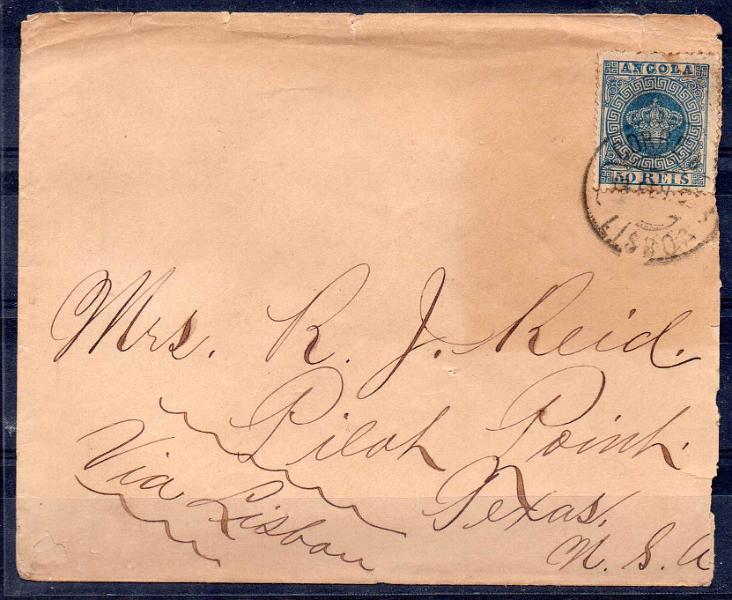 ANGOLA
50 REIS
LISBOA
Mrs. R. J. Reid.
Pilot Point.
Via Lisbon
Texas.
U. S. A